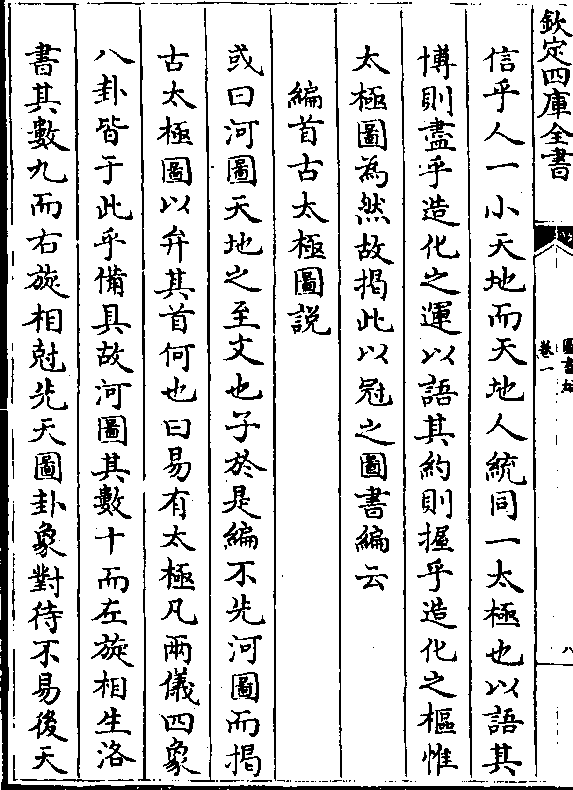 欽定四庫全書
圖書編
卷一
八
信乎人一小天地而天地人統同一太極也以語其
博則盡乎造化之運以語其約則握乎造化之樞惟
太極圖為然故揭此以冠之圖書編云
編首古太極圖説
或曰河圖天地之至文也子於是編不先河圖而揭
古太極圖以弁其首何也曰易有太極凡兩儀四象
八卦皆于此乎備具故河圖其數十而左旋相生洛
書其數九而右旋相尅先天圖卦象對待不易後天